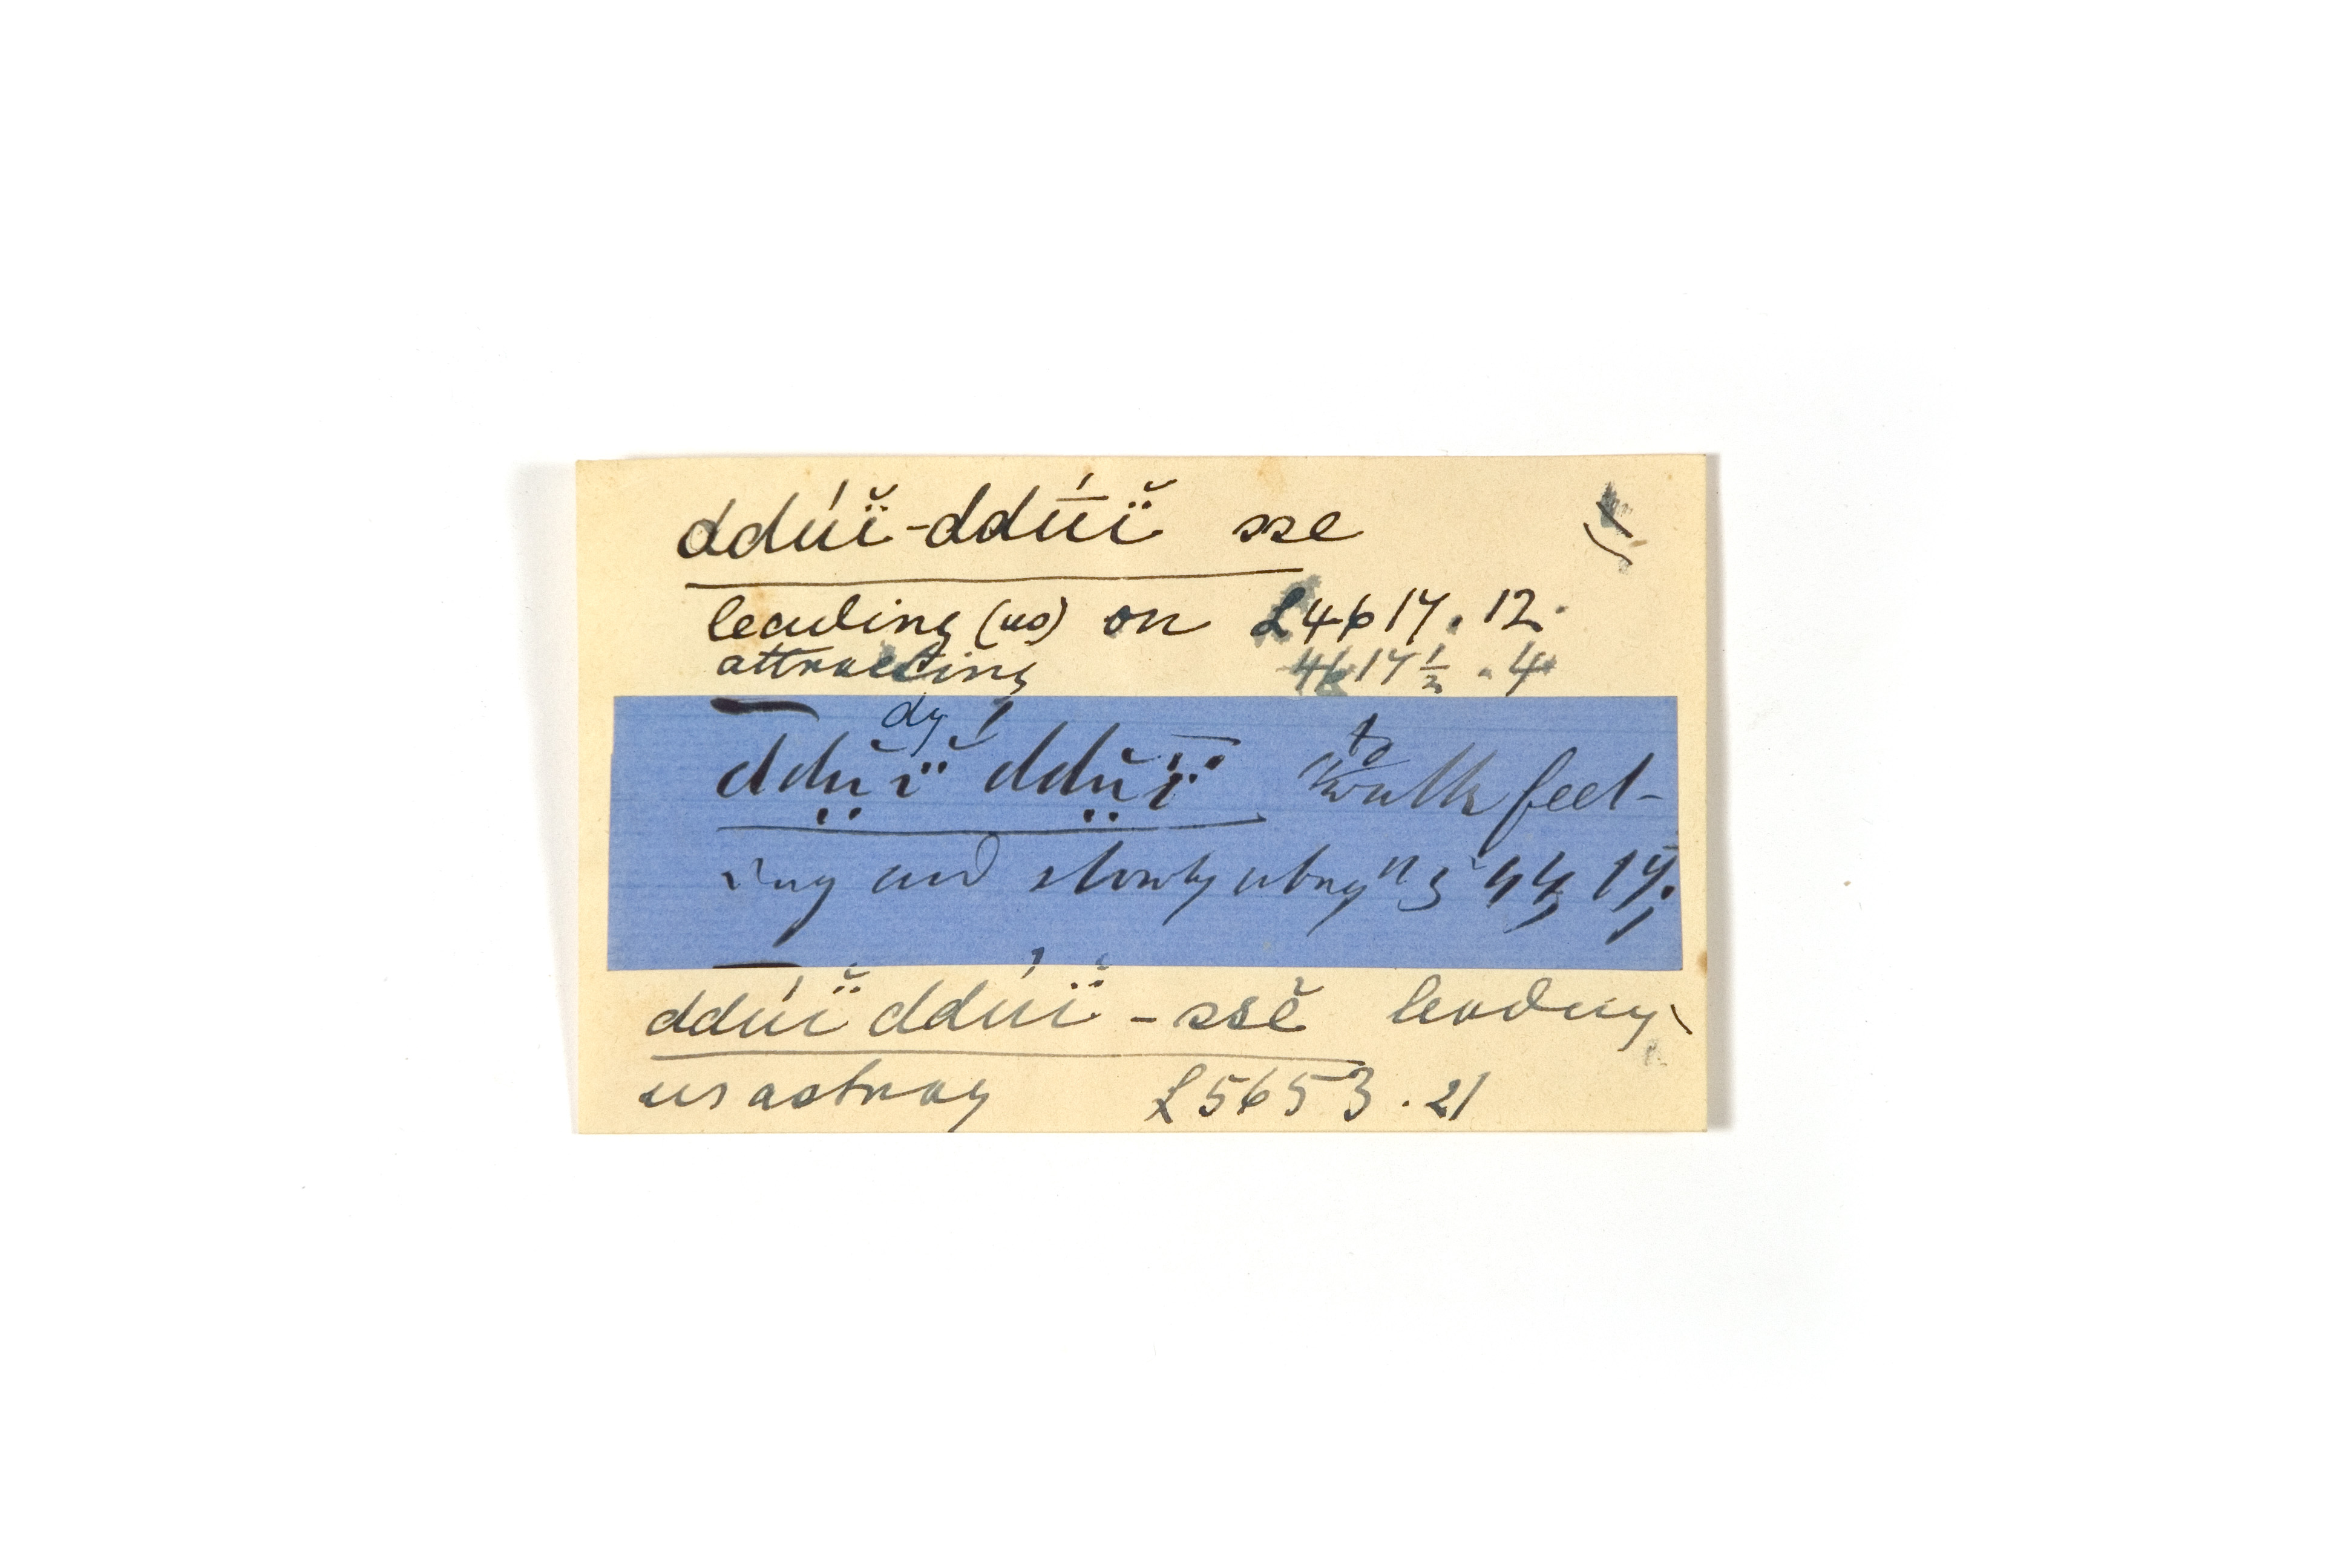 ddúï̆-ddū́ï̆ sse
leading (us) on L4617.12.
attracting 4617½.4
dy
ddṳ̆ï̆ ddṳ̆ï̄ to walk feel-
ing and slowly along 
ddúï̆ ddúï̆-ssĕ leading
us astray L5653.21